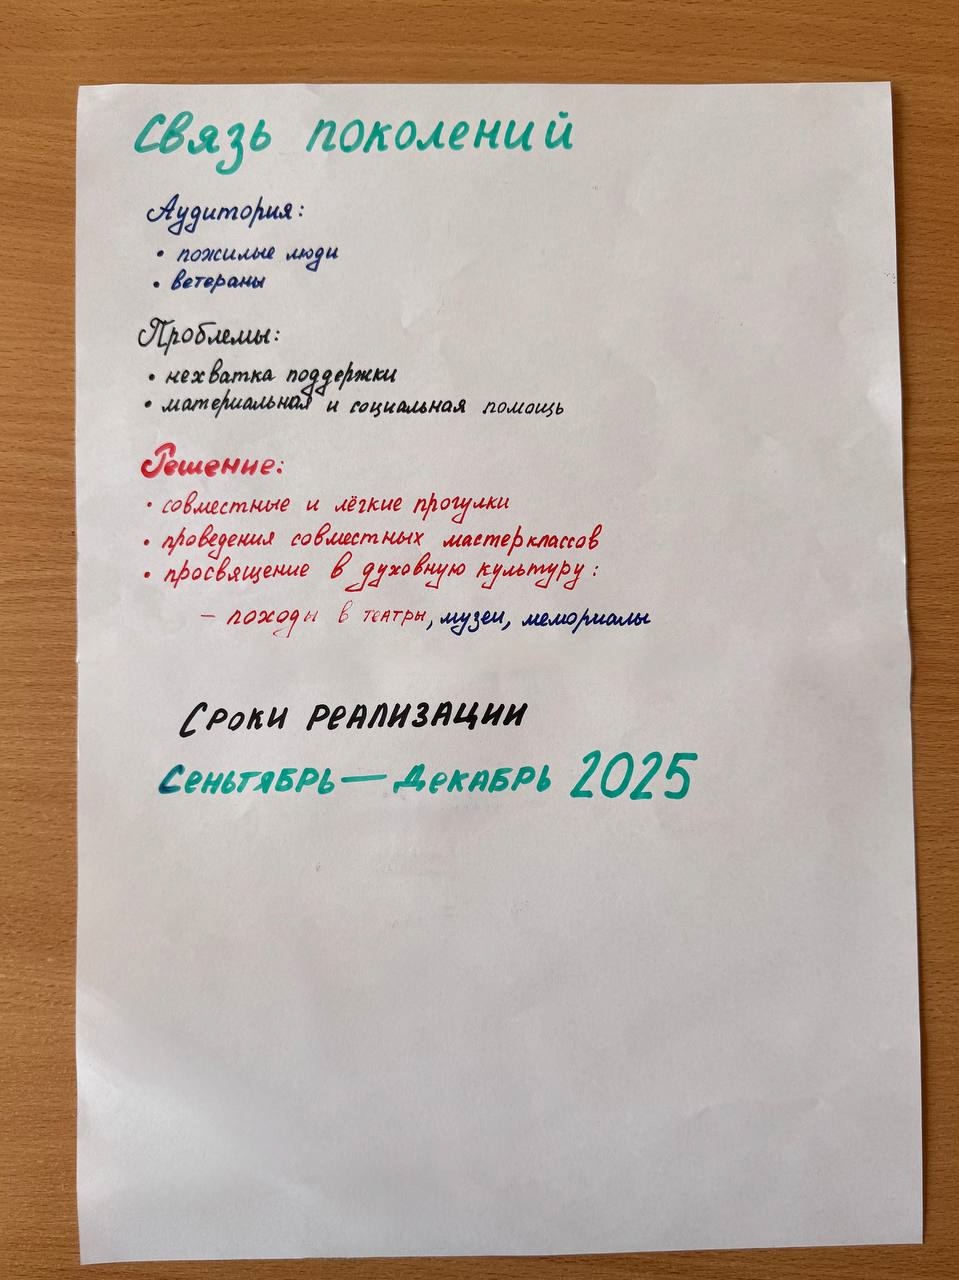 Связь поколений
Аудитория:
• пожилые люди
• ветераны
Проблемы:
• нехватка поддержки
• материальная и социальная помощь
Решение:
• совместные и лёгкие прогулки
• проведения совместных мастерклассов
• просвящение в духовную культуру:
– походы в театры, музеи, мемориалы
Сроки реализации
Сеньтябрь — Декабрь 2025